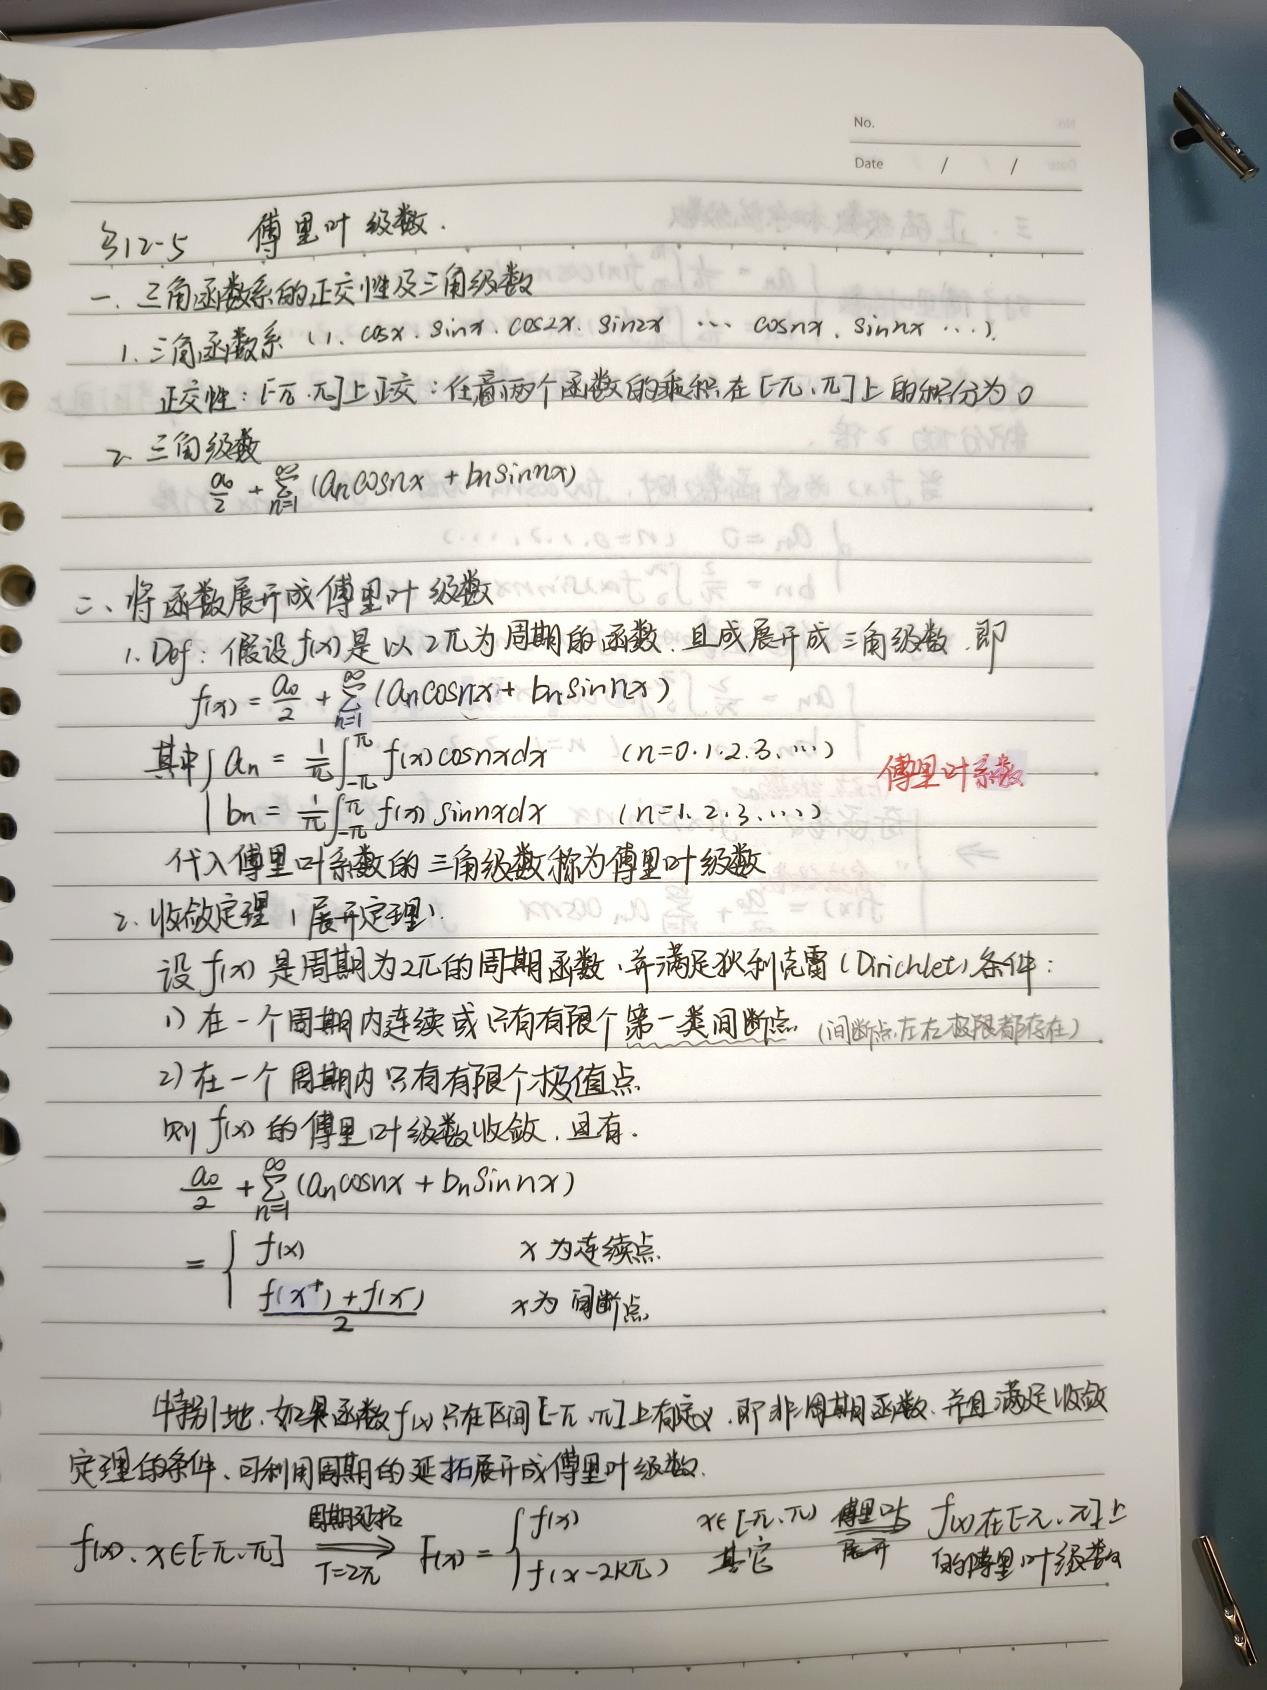 No.
Date / /
§12-5 傅里叶级数.
一. 三角函数系的正交性及三角级数
1. 三角函数系 (1. cosx. sinx. cos2x. sin2x … cosnx. sinnx …).
正交性: [-π.π]上正交: 任意两个函数的乘积在[-π.π]上的积分为0
2. 三角级数
a₀/2 + ∑_{n=1}^∞ (aₙcosnx + bₙsinnx)
二. 将函数展开成傅里叶级数
1. Def: 假设f(x)是以2π为周期的函数.且成展开成三角级数.即
f(x) = a₀/2 + ∑_{n=1}^∞ (aₙcosnx + bₙsinnx)
其中{ aₙ = 1/π ∫_{-π}^{π} f(x)cosnxdx (n=0.1.2.3.…)
bₙ = 1/π ∫_{-π}^{π} f(x)sinnxdx (n=1.2.3.…)
傅里叶系数
代入傅里叶系数的三角级数称为傅里叶级数
2. 收敛定理(展开定理).
设f(x)是周期为2π的周期函数.并满足狄利克雷(Dirichlet)条件:
1) 在一个周期内连续或只有有限个第一类间断点 (间断点左右极限都存在)
2) 在一个周期内只有有限个极值点.
则f(x)的傅里叶级数收敛.且有.
a₀/2 + ∑_{n=1}^∞ (aₙcosnx + bₙsinnx)
= { f(x) x为连续点.
(f(x⁺)+f(x⁻))/2 x为间断点.
特别地.如果函数f(x)只在区间[-π.π]上有定义.即非周期函数.并且满足收敛
定理的条件、可利用周期的延拓展开成傅里叶级数.
f(x).x∈[-π.π] 周期延拓 ⟹ T=2π F(x) = { f(x) x∈[-π.π) 傅里叶 ⟹ 展开 f(x)在[-π.π]上
f(x-2kπ) 其它 的傅里叶级数